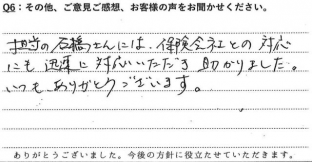 Q6：その他、ご意見ご感想、お客様の声をお聞かせください。
担当の石橋さんには、保険会社との対応
にも迅速に対応いただき助かりました。
いつもありがとうございます。
ありがとうございました。今後の方針に役立たせていただきます。